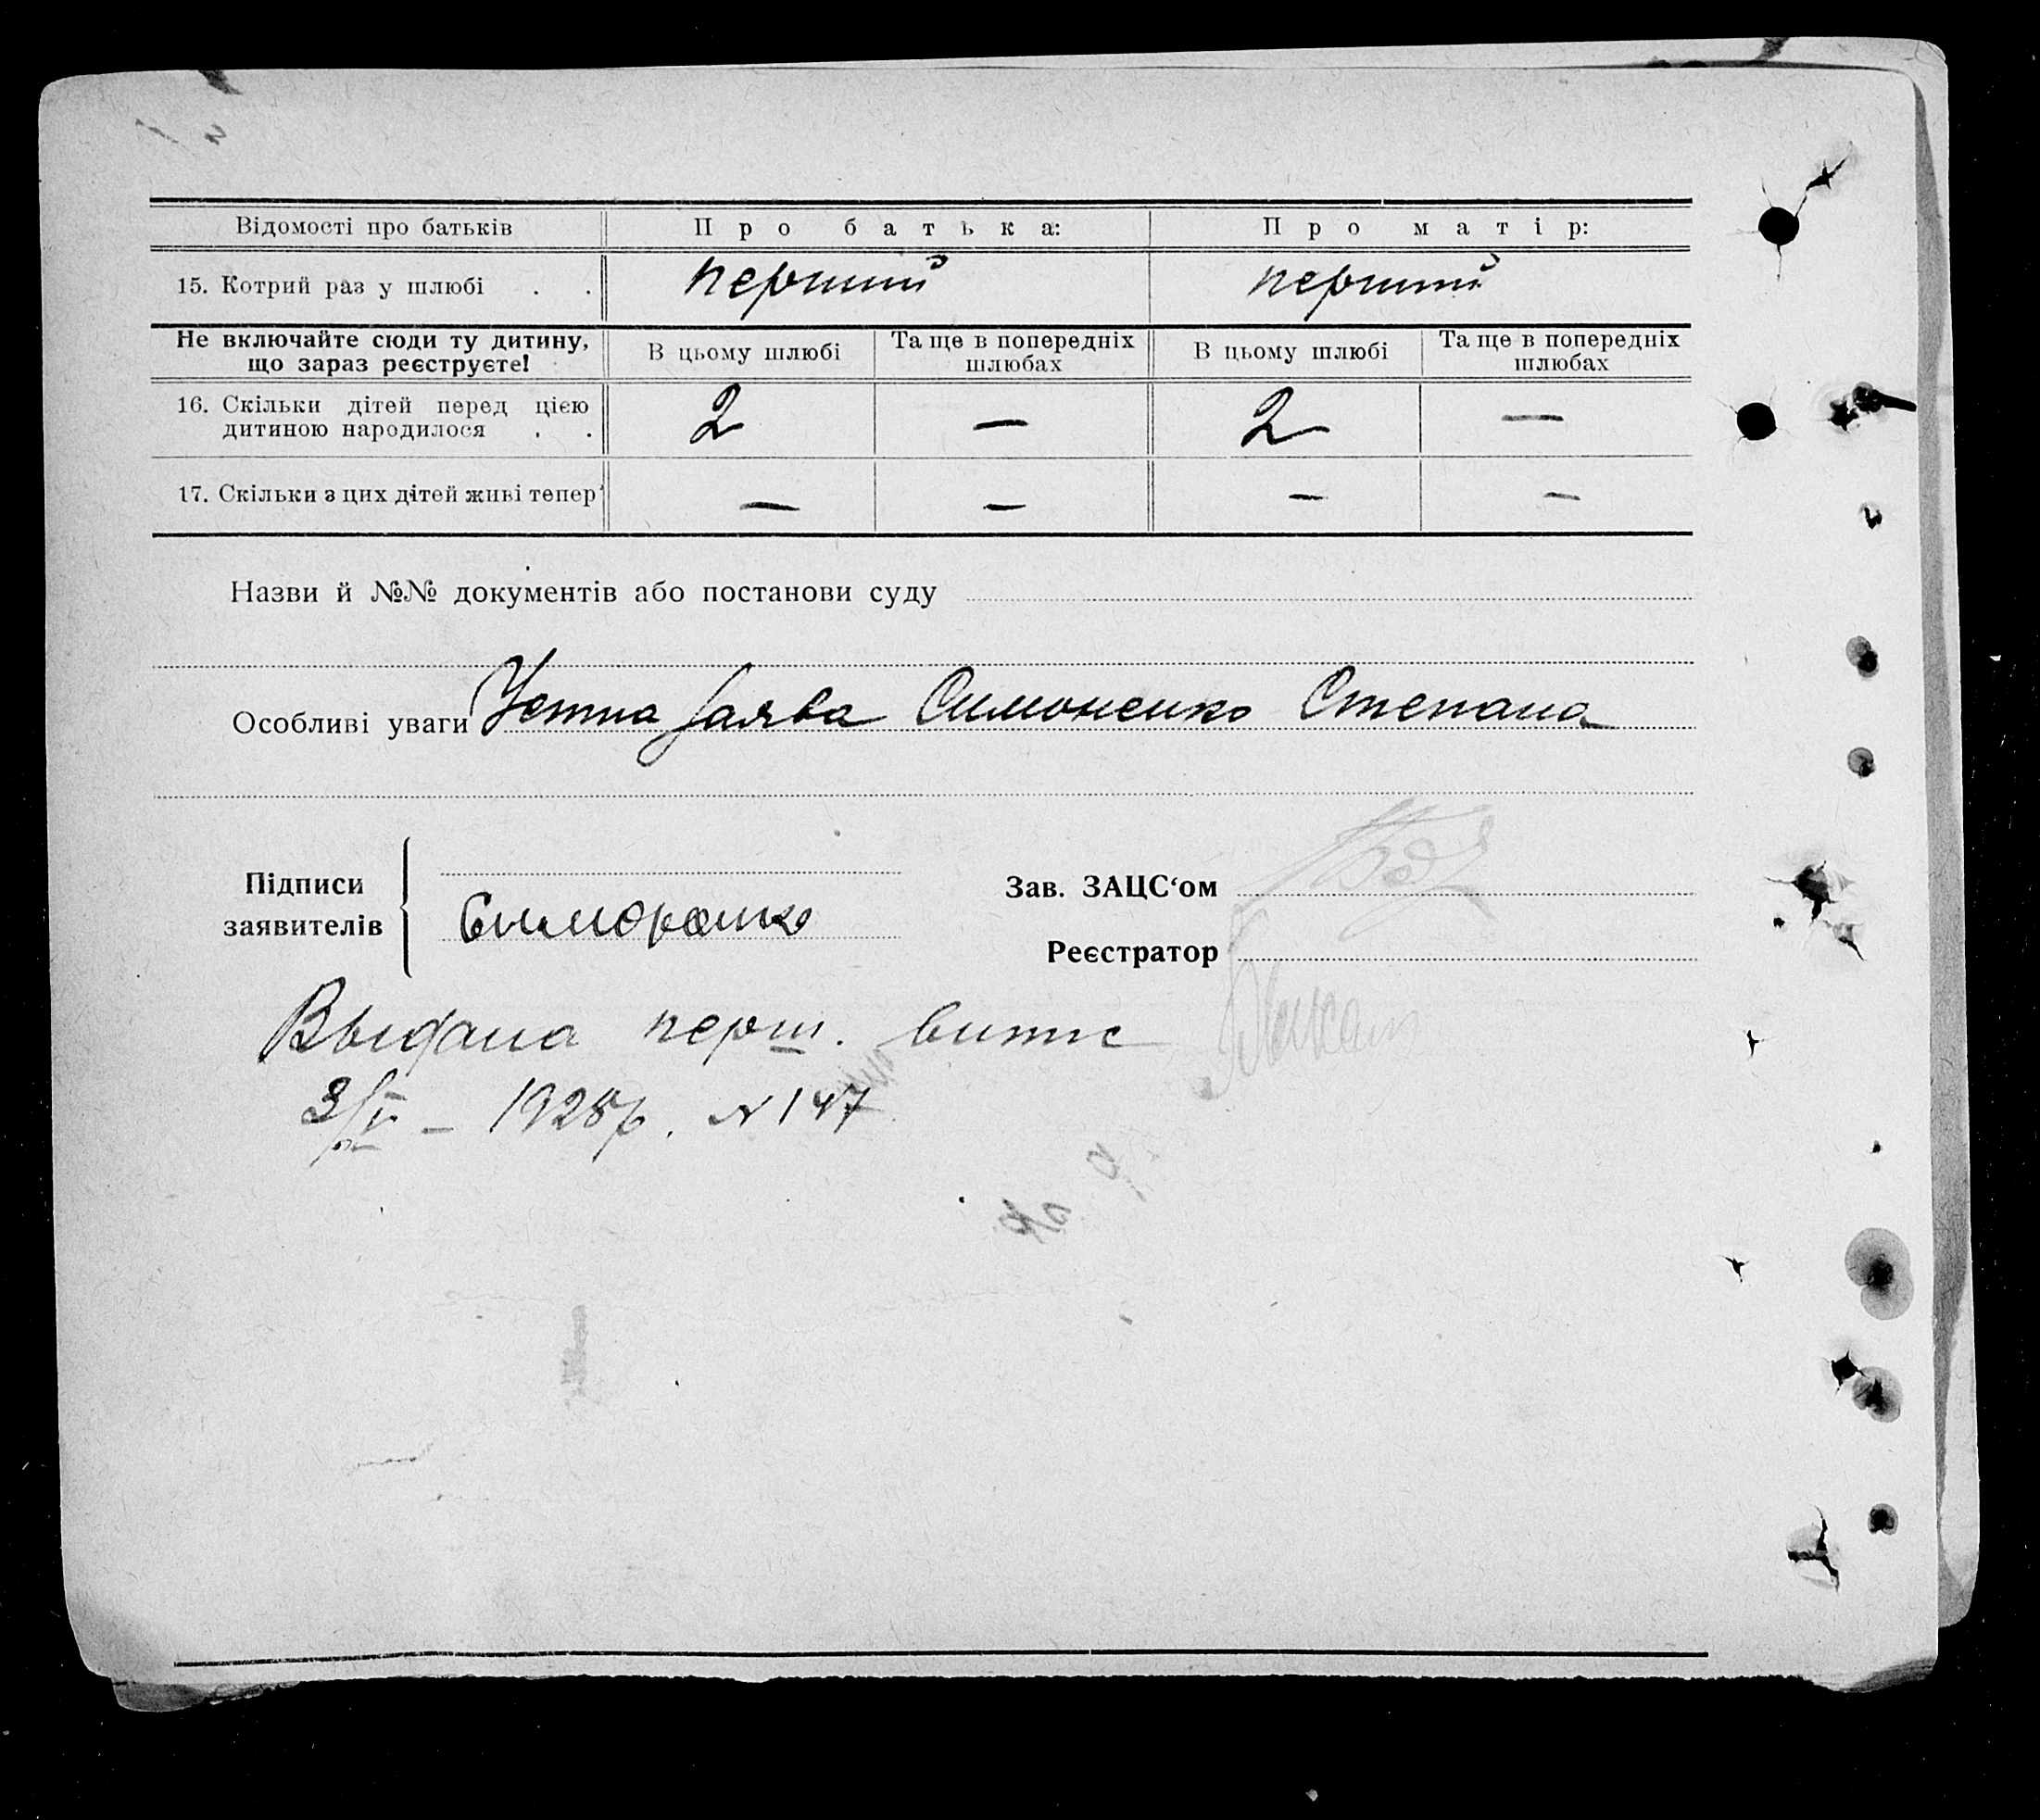 Відомості про батьків Про батька: Про матір:
15. Котрий раз у шлюбі . . перший перший
Не включайте сюди ту дитину, що зараз реєструєте! В цьому шлюбі Та ще в попередніх шлюбах В цьому шлюбі Та ще в попередніх шлюбах
16. Скільки дітей перед цією дитиною народилося . . 2 — 2 —
17. Скільки з цих дітей живі тепер — — — —
Назви й №№ документів або постанови суду
Особливі уваги Устна заява Симоненко Степана
Підписи заявителів
Симоненко
Зав. ЗАЦС‘ом
Реєстратор
Выдана перш. витис
3/V – 1928р. N 147